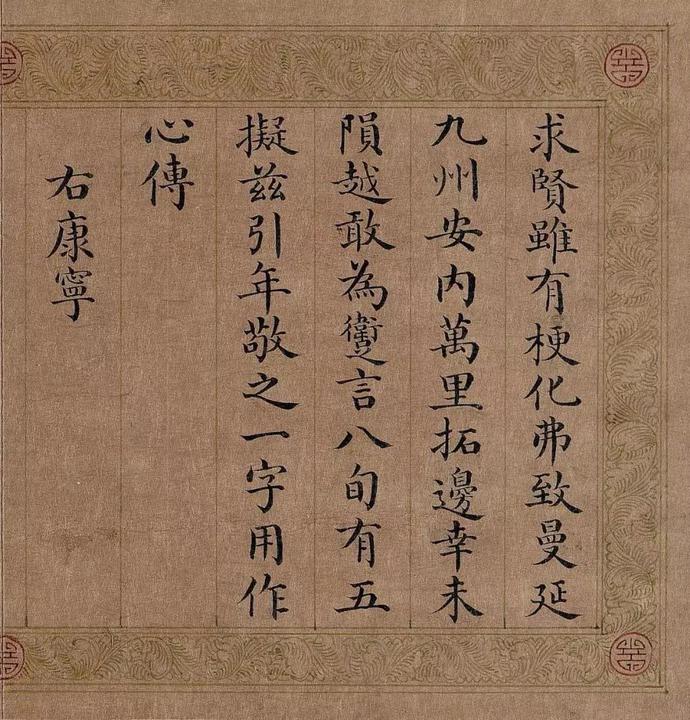 求賢雖有梗化弗致曼延
九州安內萬里拓邊幸未
隕越敢為躗言八旬有五
擬茲引年敬之一字用作
心傳
右康寧